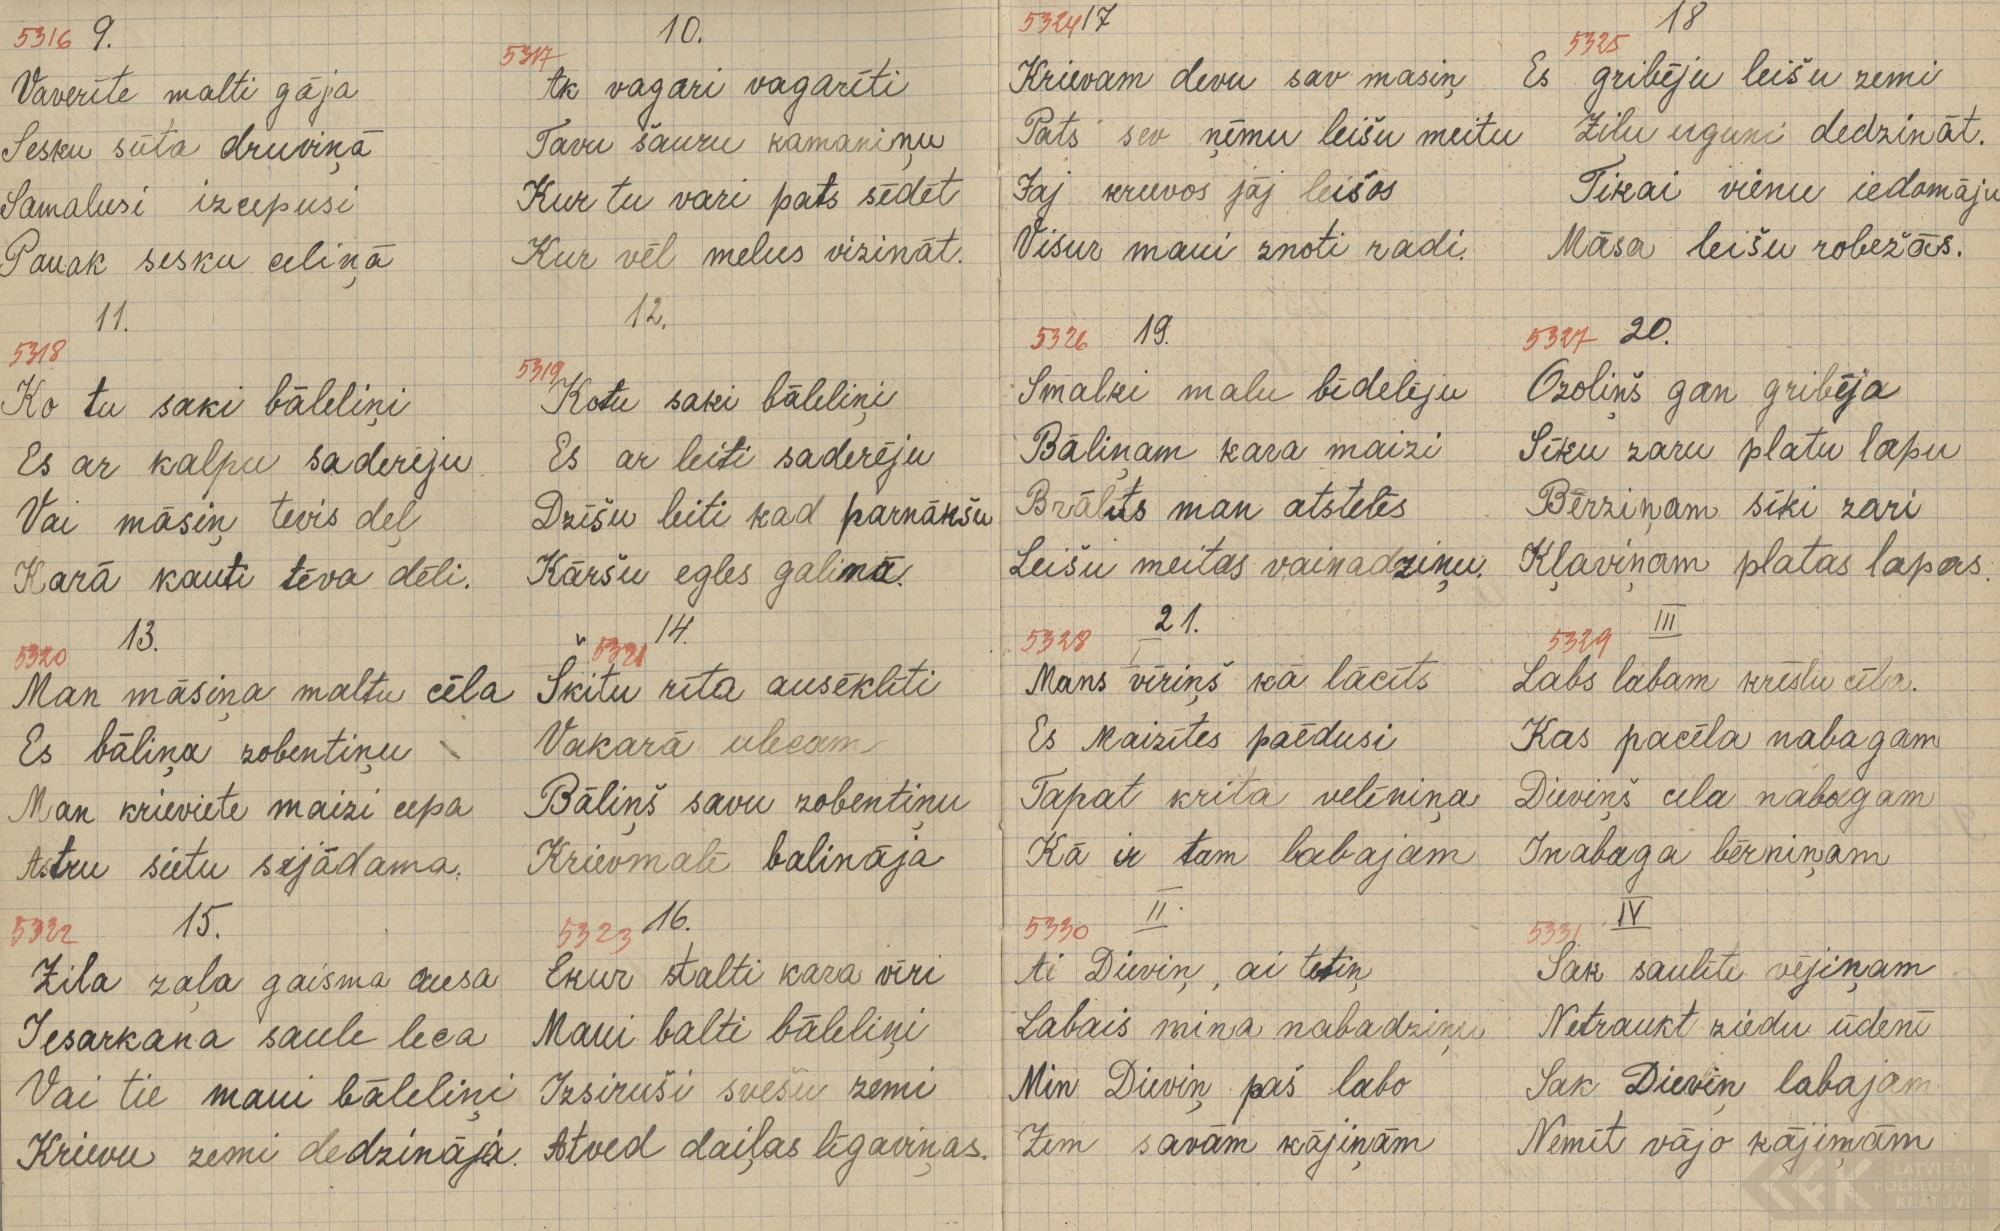 5316 9.
Vaverīte malti gāja
Sesku sūta druviņā
Samalusi izcepusi
Pavak sesku celiņā
5317 10.
Ak vagari vagarīti
Tavu šauru kamaniņu
Kur tu vari pats sēdēt
Kur vēl melus vizināt.
5318 11.
Ko tu saki bāleliņi
Es ar kalpu saderēju
Vai māsiņ tevis dēļ
Karā kauti tēva dēli.
5319 12.
Ko tu saki bāleliņi
Es ar leiti saderēju
Dzīšu leiti kad parnākšu
Kāršu egles galiņā.
5320 13.
Man māsiņa maltu cēla
Es bāliņa zobentiņu
Man krieviete maizi cepa
Astru sietu sijādama.
5321 14.
Šķitu rīta auseklīti
Vakarā uzlecam
Bāliņš savu zobentiņu
Krievmalē balināja
5322 15.
Zila zaļa gaisma ausa
Iesarkana saule leca
Vai tie maui bāleliņi
Krievu zemi dedzināja.
5323 16.
Ekur stalti kara vīri
Maui balti bāleliņi
Izsiruši svešu zemi
Atved daiļas līgaviņas.
5324 17
Krievam devu sav masiņ
Pats sev ņēmu leišu meitu
Jaj krievos jāj leišos
Visur maui znoti radi.
5325 18
Es gribēju leišu zemi
Zilu uguni dedzināt.
Tikai vienu iedomāju
Māsa leišu robežās.
5326 19.
Smalki malu bīdelēju
Bāliņam kara maizi
Brālits man atstelēs
Leišu meitas vainadziņu.
5327 20.
Ozoliņš gan gribēja
Sīku zaru platu lapu
Bērziņam sīki zari
Kļaviņam platas lapas.
5328 21.
I
Mans vīriņš kā lācīts
Es Maizītes paēdusi
Tapat krita velēniņa
Kā ir tam labajam
5329 III
Labs labam krēslu cēla.
Kas pacēla nabagam
Dieviņš cēla nabagam
I nabaga bērniņam
5330 II.
Ai Dieviņ, ai tetiņ
Labais mina nabadziņu
Min Dieviņ paš labo
Zem savām kājiņām
5331 IV
Sak saulīte vējiņam
Netraukt ziedu ūdenī
Sak Dieviņ labajam
Nemīt vājo kājiņām
LATVIEŠU
FOLKLORAS
KRĀTUVE